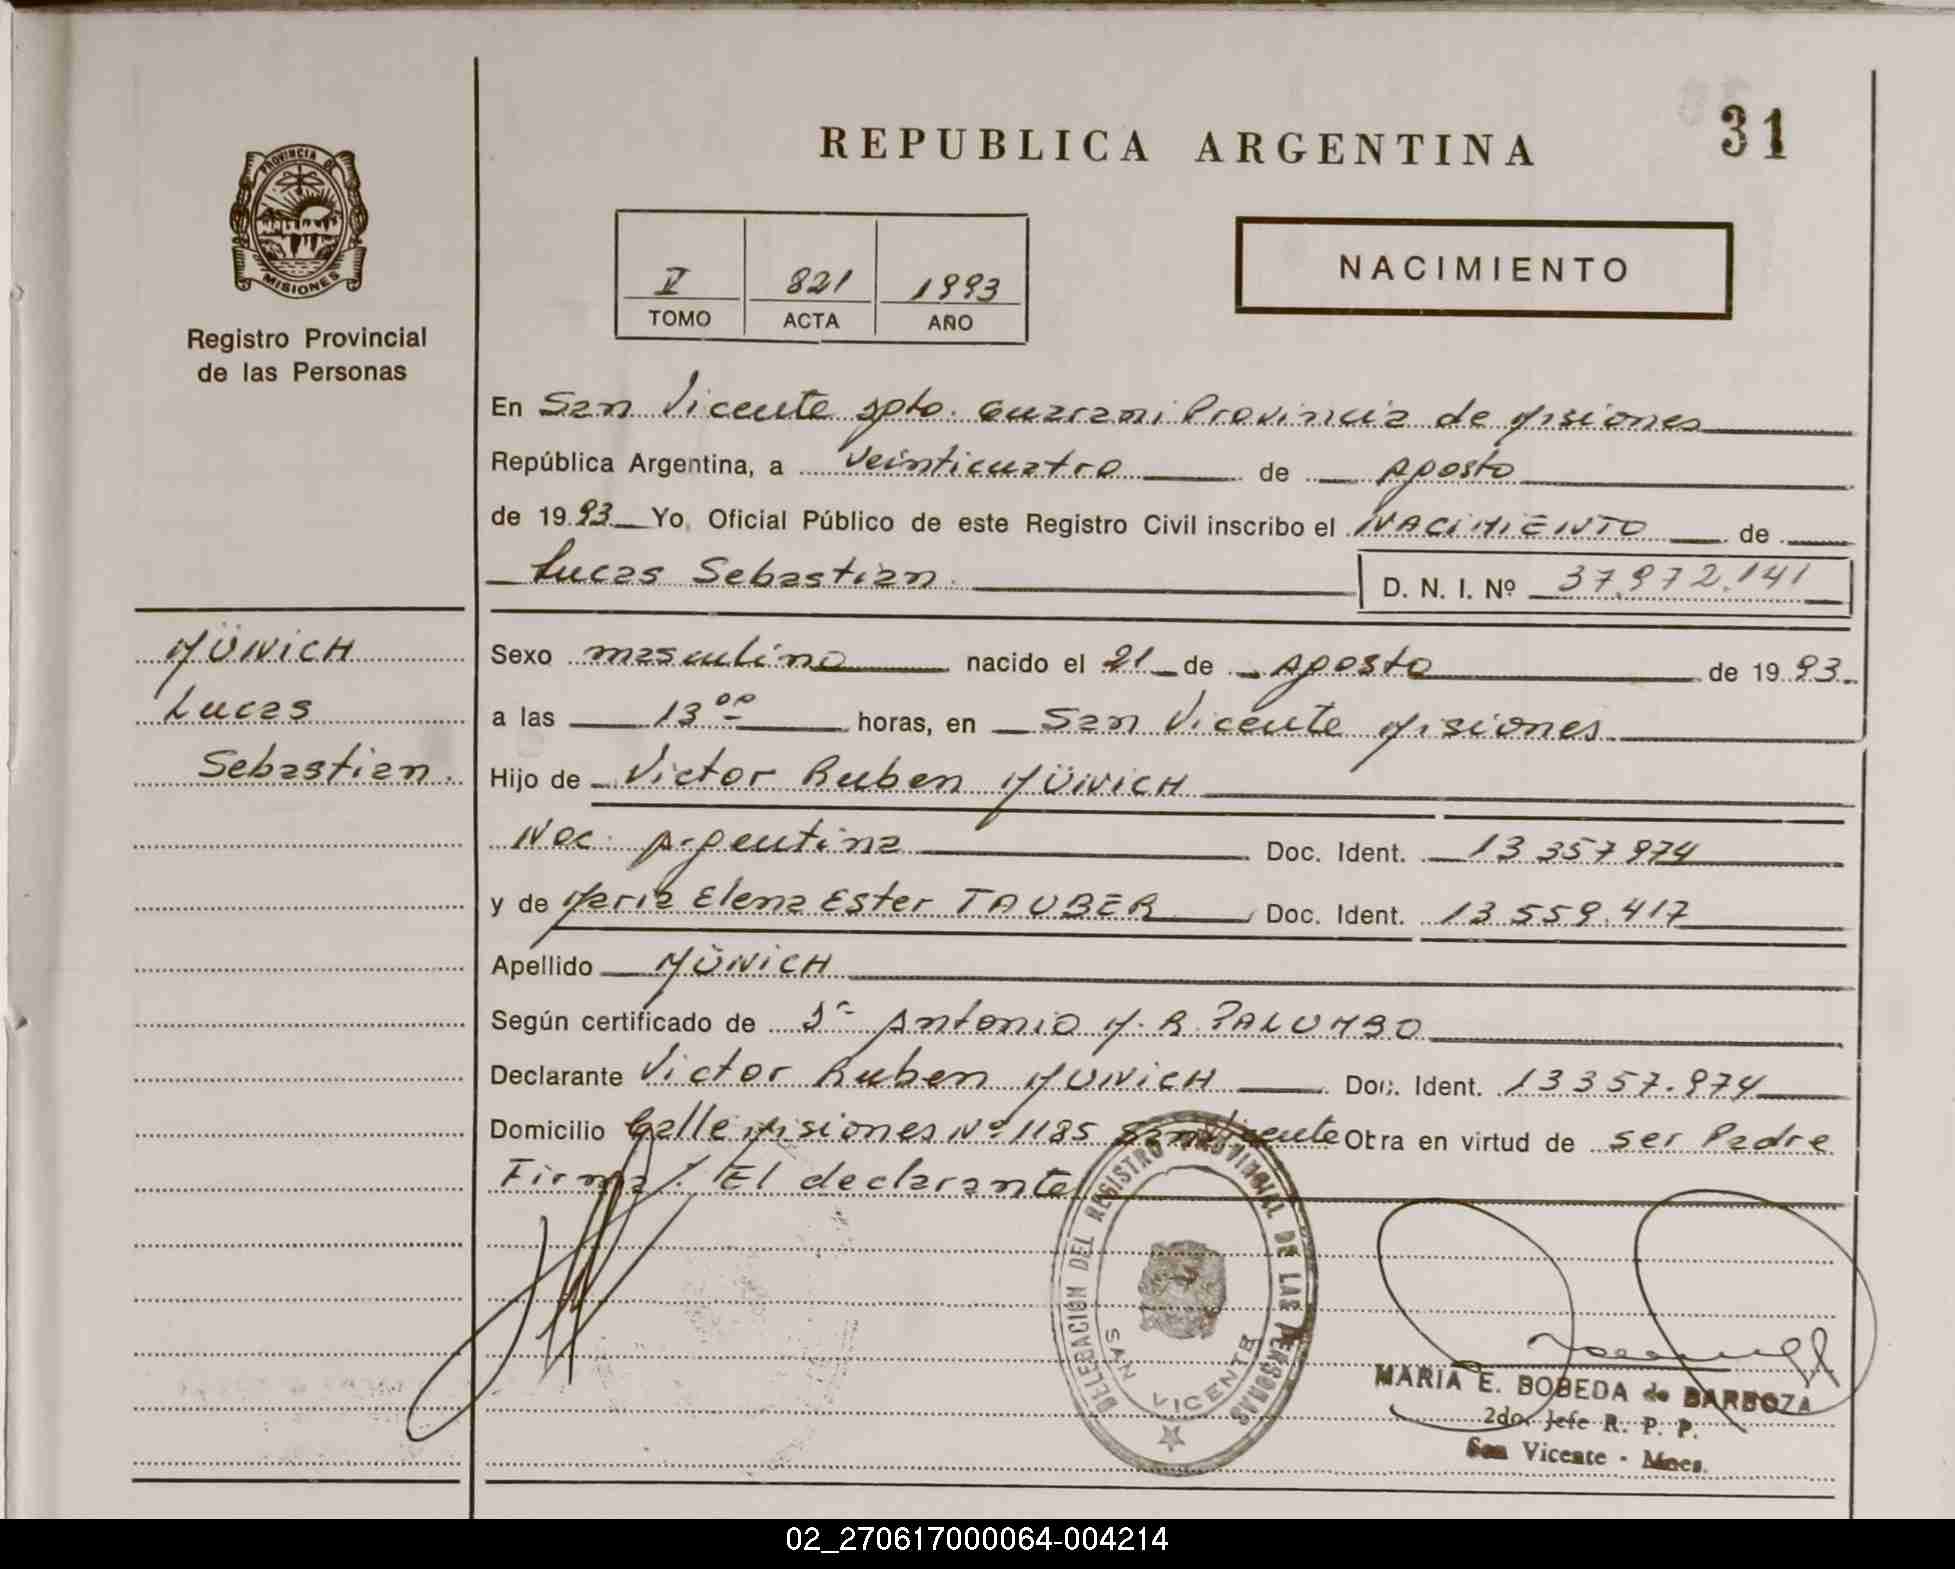 31
REPUBLICA ARGENTINA
PROVINCIA DE
MISIONES
Registro Provincial
de las Personas
V 821 1993
TOMO ACTA AÑO
NACIMIENTO
En San Vicente Dpto. Guarani Provincia de Misiones
República Argentina, a veinticuatro de Agosto
de 1993 Yo, Oficial Público de este Registro Civil inscribo el NACIMIENTO de
Lucas Sebastian. D. N. I. Nº 37.972.141
MÜNICH
Lucas
Sebastian.
Sexo masculino nacido el 21 de Agosto de 1993.
a las 13 ºº horas, en San Vicente Misiones.
Hijo de Victor Ruben MÜNICH
Nac. Argentina Doc. Ident. 13 357 974
y de Maria Elena Ester TAUBER Doc. Ident. 13 559.417
Apellido MÜNICH
Según certificado de Antonio M. R. PALUMBO
Declarante Victor Ruben MUNICH Doc. Ident. 13357.974
Domicilio Calle Misiones Nº 1185 San Vicente Obra en virtud de ser Padre
Firma: El declarante
DELEGACION DEL REGISTRO PROVINCIAL DE LAS PERSONAS
SAN VICENTE
MARIA E. BOBEDA de BARBOZA
2do. Jefe R. P. P.
San Vicente - Mnes.
02_270617000064-004214